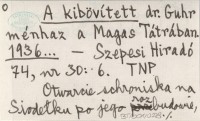 A kibővített dr. Guhr
ménház a Magas Tátrában.
1936... — Szepesi Hiradó
74, nr 30: 6. TNP
Otwarcie schroniska na
po jego roz budowie,